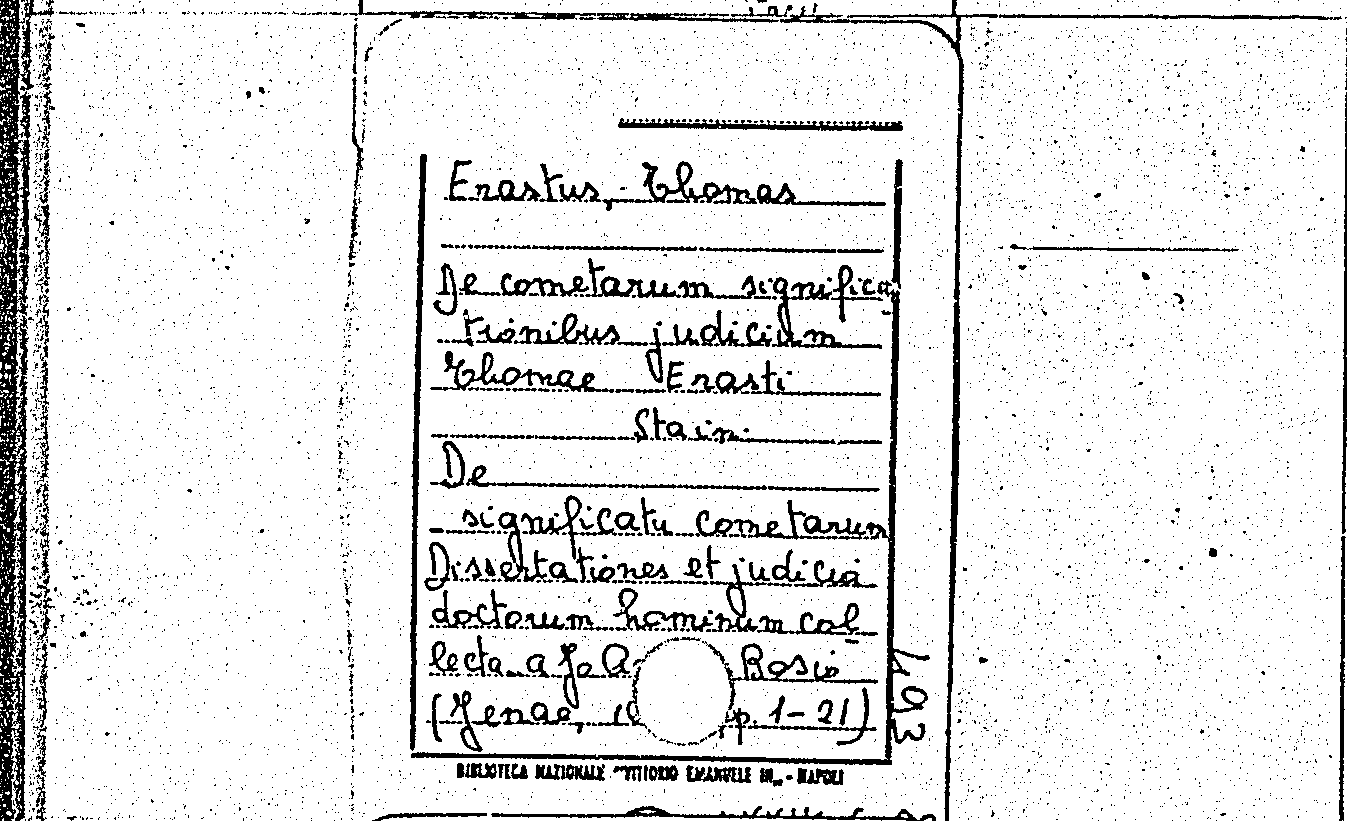 Erastus, Thomas
De cometarum significa-
tionibus judicium
Thomae Erasti
Stain.
De
significatu cometarum
Dissertationes et judicia
doctorum hominum col_
lecta a Jo. Rosio
(Jenae, pp. 1-21)
493
BIBLIOTECA NAZIONALE "VITTORIO EMANUELE III„ - NAPOLI